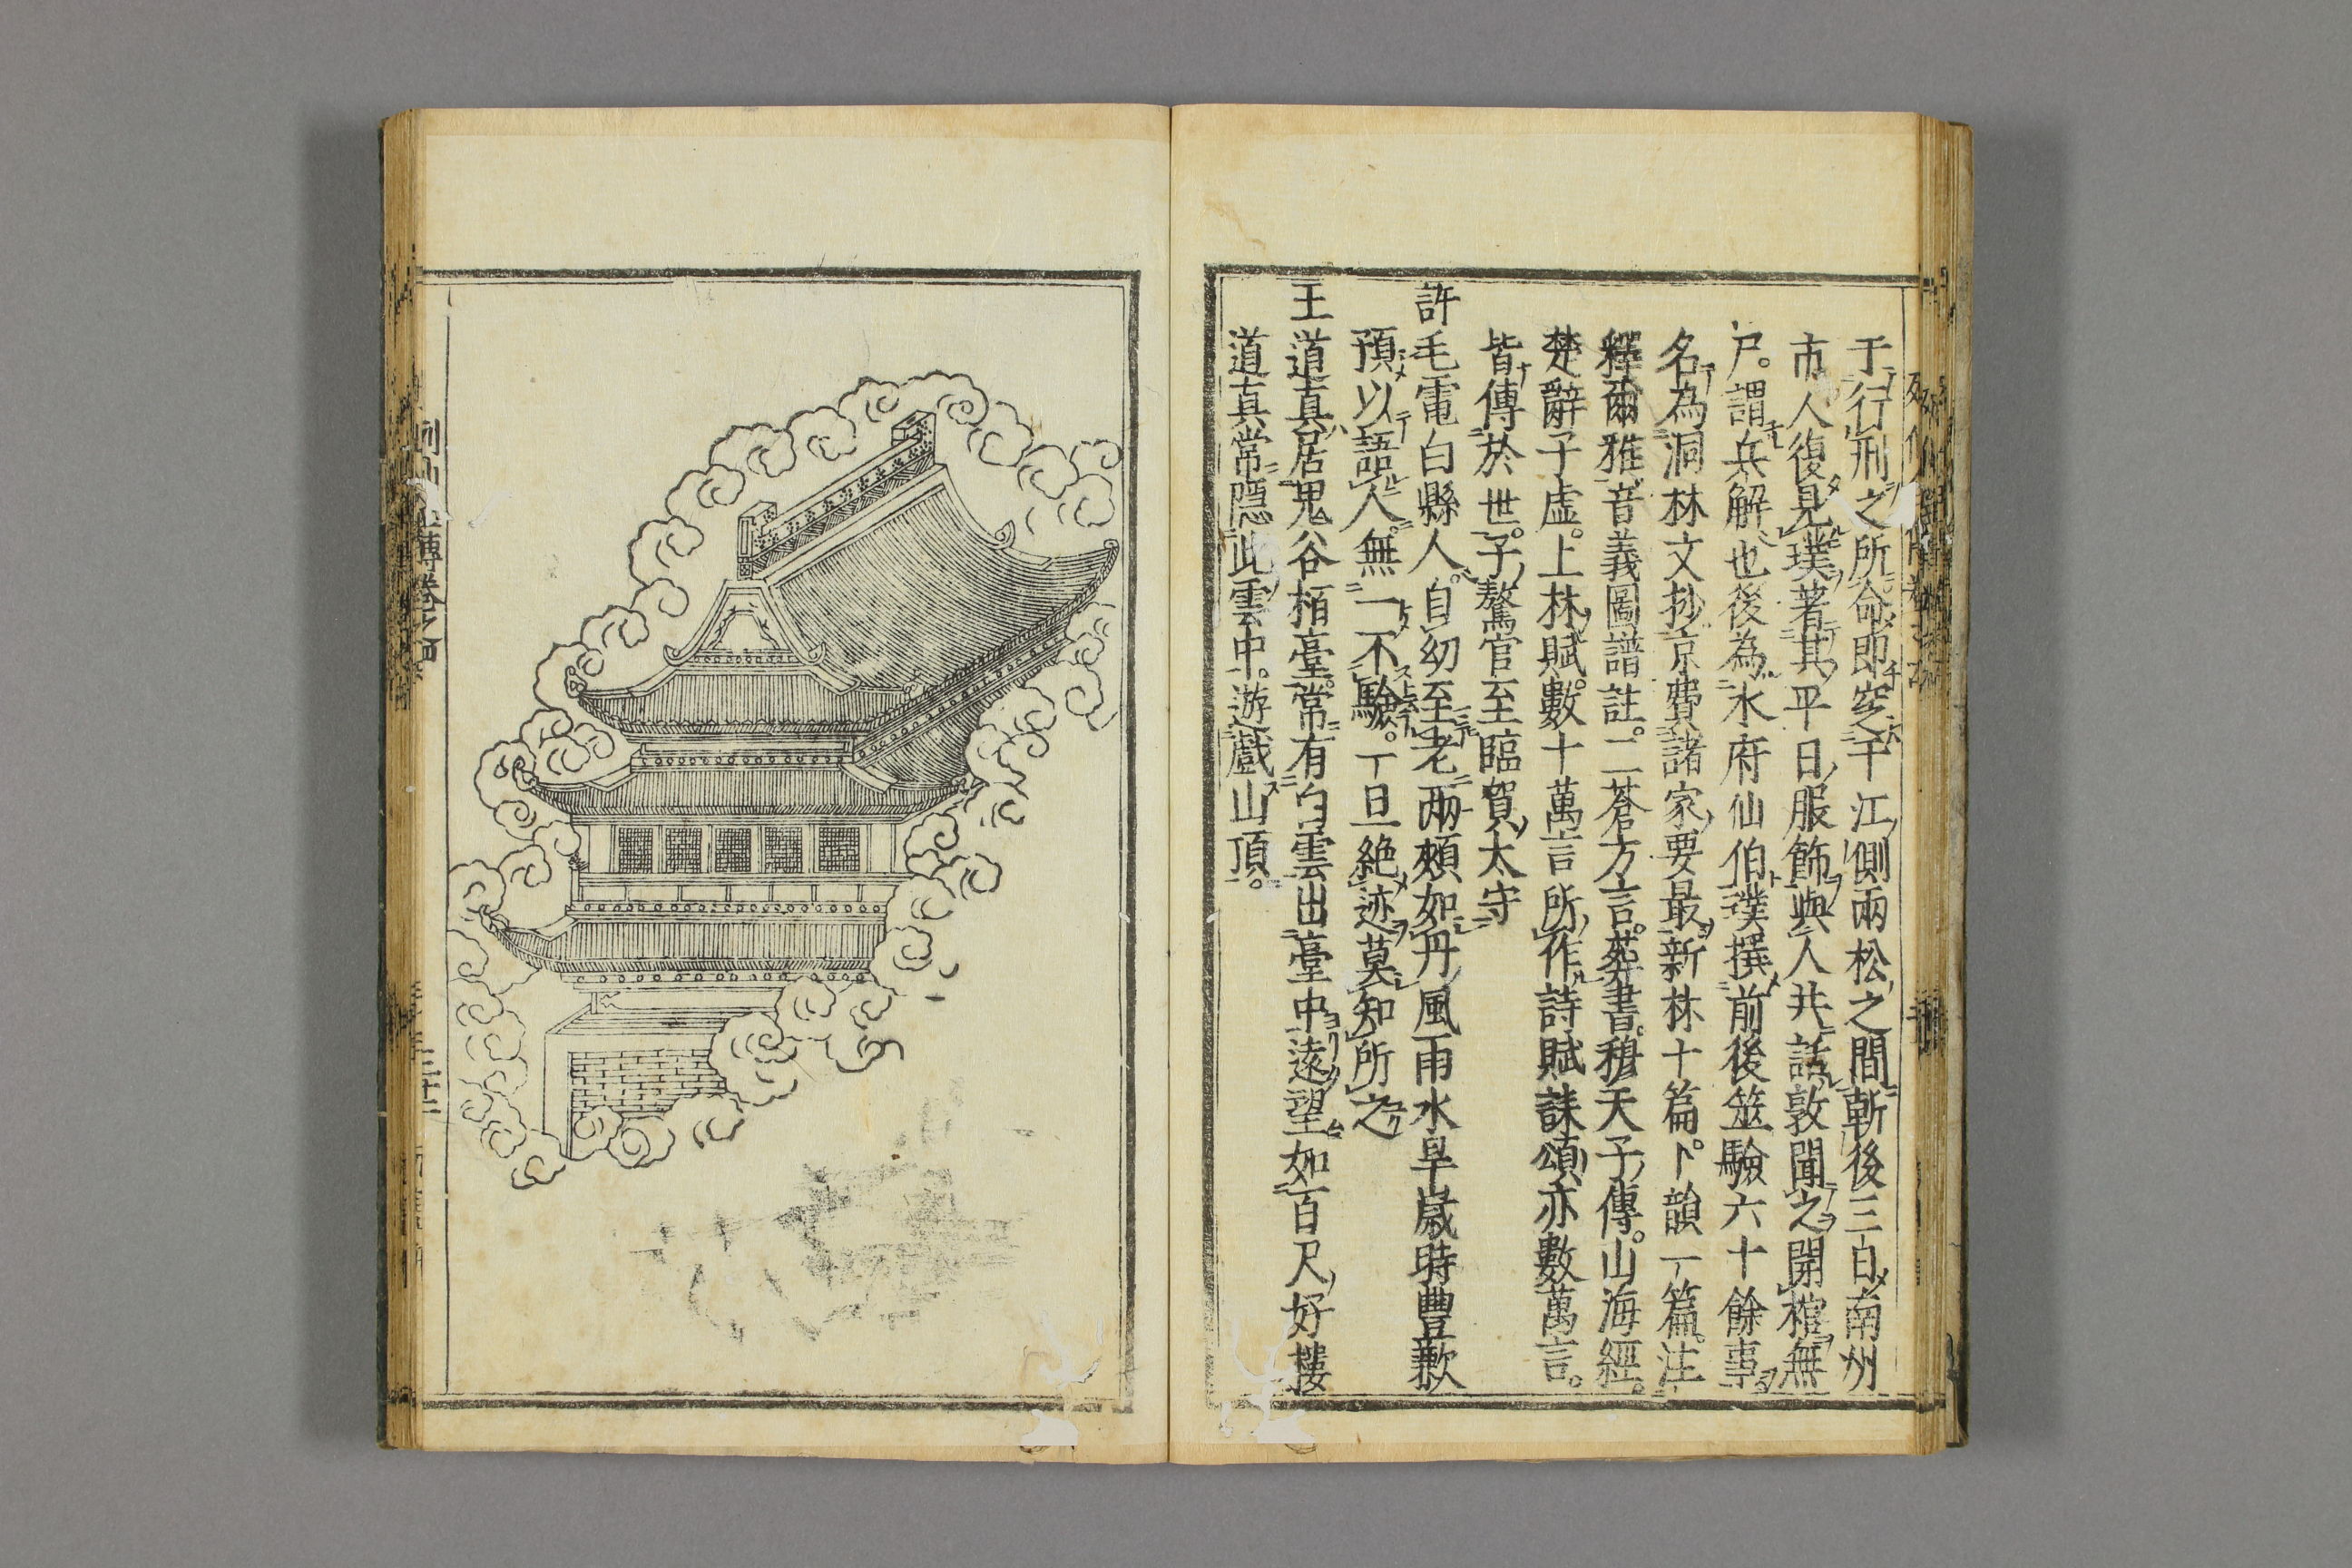 于行刑之所命即窆于江側兩松之間斬後三日南州
市人復見璞著其平日服飾與人共話敦聞之開棺無
尸。謂兵解也後為水府仙伯璞撰前後筮驗六十餘事
名為洞林文抄京費諸家要最新林十篇。卜韻一篇。注
釋爾雅音義圖譜註。二蒼方言。葬書。穆天子傳。山海經。
楚辭子虛。上林賦。數十萬言所作詩賦誄頌亦數萬言。
皆傳於世。子驁官至臨賀太守
許毛電白縣人。自幼至老兩頰如丹風雨水旱歲時豐歉
預以語人。無一不驗。一旦絕迹莫知所之
王道真居鬼谷栢臺。常有白雲出臺中遠望如百尺好樓
道真常隱此雲中。游戲山頂。